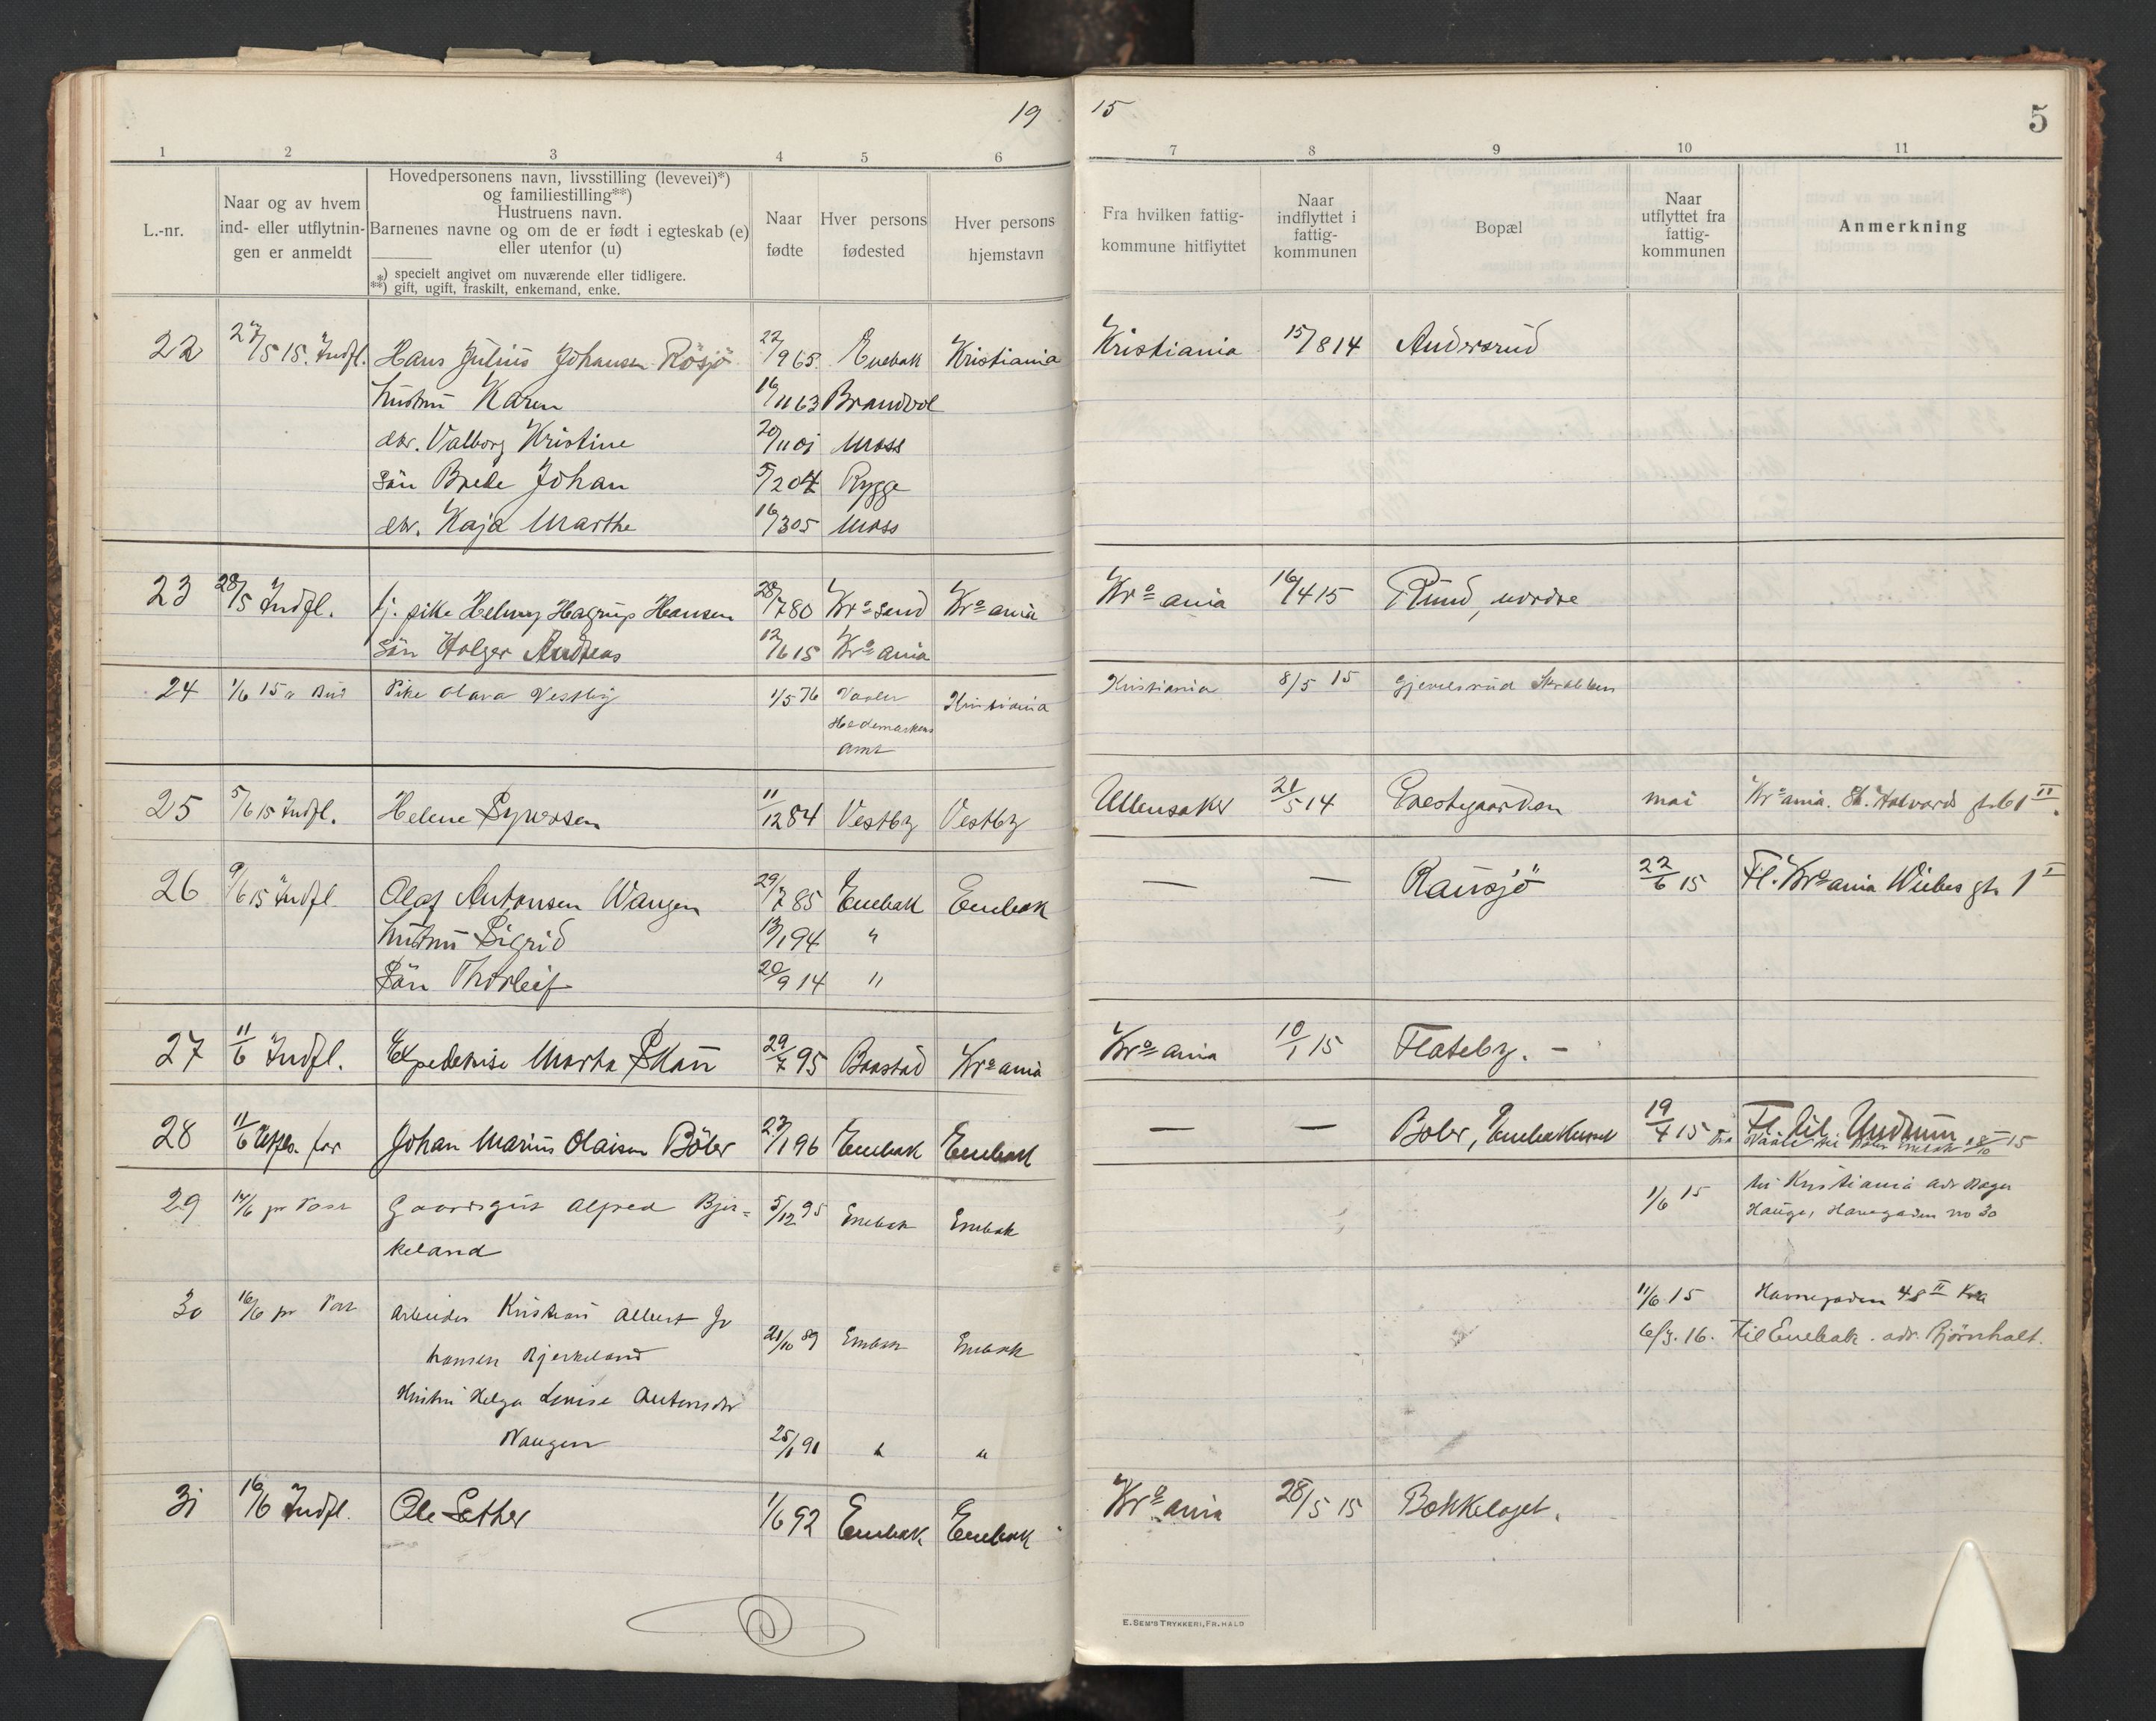 19
15
5
1 2 3 4 5 6 7 8 9 10 11
L.-nr.
Naar og av hvem
ind- eller utflytnin-
gen er anmeldt
Hovedpersonens navn, livsstilling (levevei)*)
og familiestilling**)
Hustruens navn.
Barnenes navne og om de er født i egteskab (e)
eller utenfor (u)
*) specielt angivet om nuværende eller tidligere.
**) gift, ugift, fraskilt, enkemand, enke.
Naar
fødte
Hver persons
fødested
Hver persons
hjemstavn
Fra hvilken fattig-
kommune hitflyttet
Naar
indflyttet i
fattig-
kommunen
Bopæl
Naar
utflyttet fra
fattig-
kommunen
Anmerkning
22 27/5 15. Indfl. Hans Julius Johansen Rösjö 22/9 65. Enebak Kristiania Kristiania 15/8 14 Andersrud
hustru Karen 16/11 63 Brandvol
dtr. Valborg Kristine 20/11 01 Moss
sön Brede Johan 5/2 04 Rygge
dtr. Kaja Marthe 16/3 05 Moss
23 28/5 Indfl. tj. pike Helmy Hagrup Hansen 28/7 80 Kr.sand Kr.ania Kr.ania 16/4 15 Rud, nordre
sön Holger Andreas 12/6 15 Kr.ania
24 1/6 15 Pike Olava Vestby 1/5 76 Vaaler Kristiania Kristiania 8/5 15 Gjevelsrud
Hedemarkens
amt
25 5/6 15 Indfl. Helene Syversen 11/12 84 Vestby Vestby Ullensaker 21/5 14 Prestegaarden mai Kr.ania. St. Halvards gt. 61 II.
26 9/6 15 Indfl. Olaf Antonsen Wangen 29/7 85 Enebak Enebak — — Rausjö 22/6 15 Fl. Kr.ania Wiibes gt. 1 I
hustru Sigrid 13/1 94 "
Sön Thorleif 20/9 14 "
27 11/6 Indfl. Expeditrise Marta Skau 29/7 95 Baastad Kr.ania Kr.ania 10/1 15 Flateby. —
28 11/6 Utfl. far Johan Marius Olaisen Böler 27/1 96 Enebak Enebak — — Böler, 19/4 15 Fl. til
15
29 14/6 pr Post Gaardsgut Alfred Bjer- 5/12 95 Enebak Enebak 1/6 15 til Kristiania adr
keland Hauge, Havegaden no 30
30 16/6 pr Post Arbeider Kristian Albert Jo 11/6 15 Havnegaden 48 II Kra
hansen Bjerkeland 21/10 89 Enebak Enebak 6/3. 16. til Enebak. adr. Bjørnholt.
Hustru Helga Lovise Antonsdtr
Wangen 25/1 91 " "
31 16/6 Indfl. Ole Sether 1/6 92 Enebak Enebak Kr.ania 28/5 15 Bekkelaget.
E. SEM'S TRYKKERI, FR.HALD